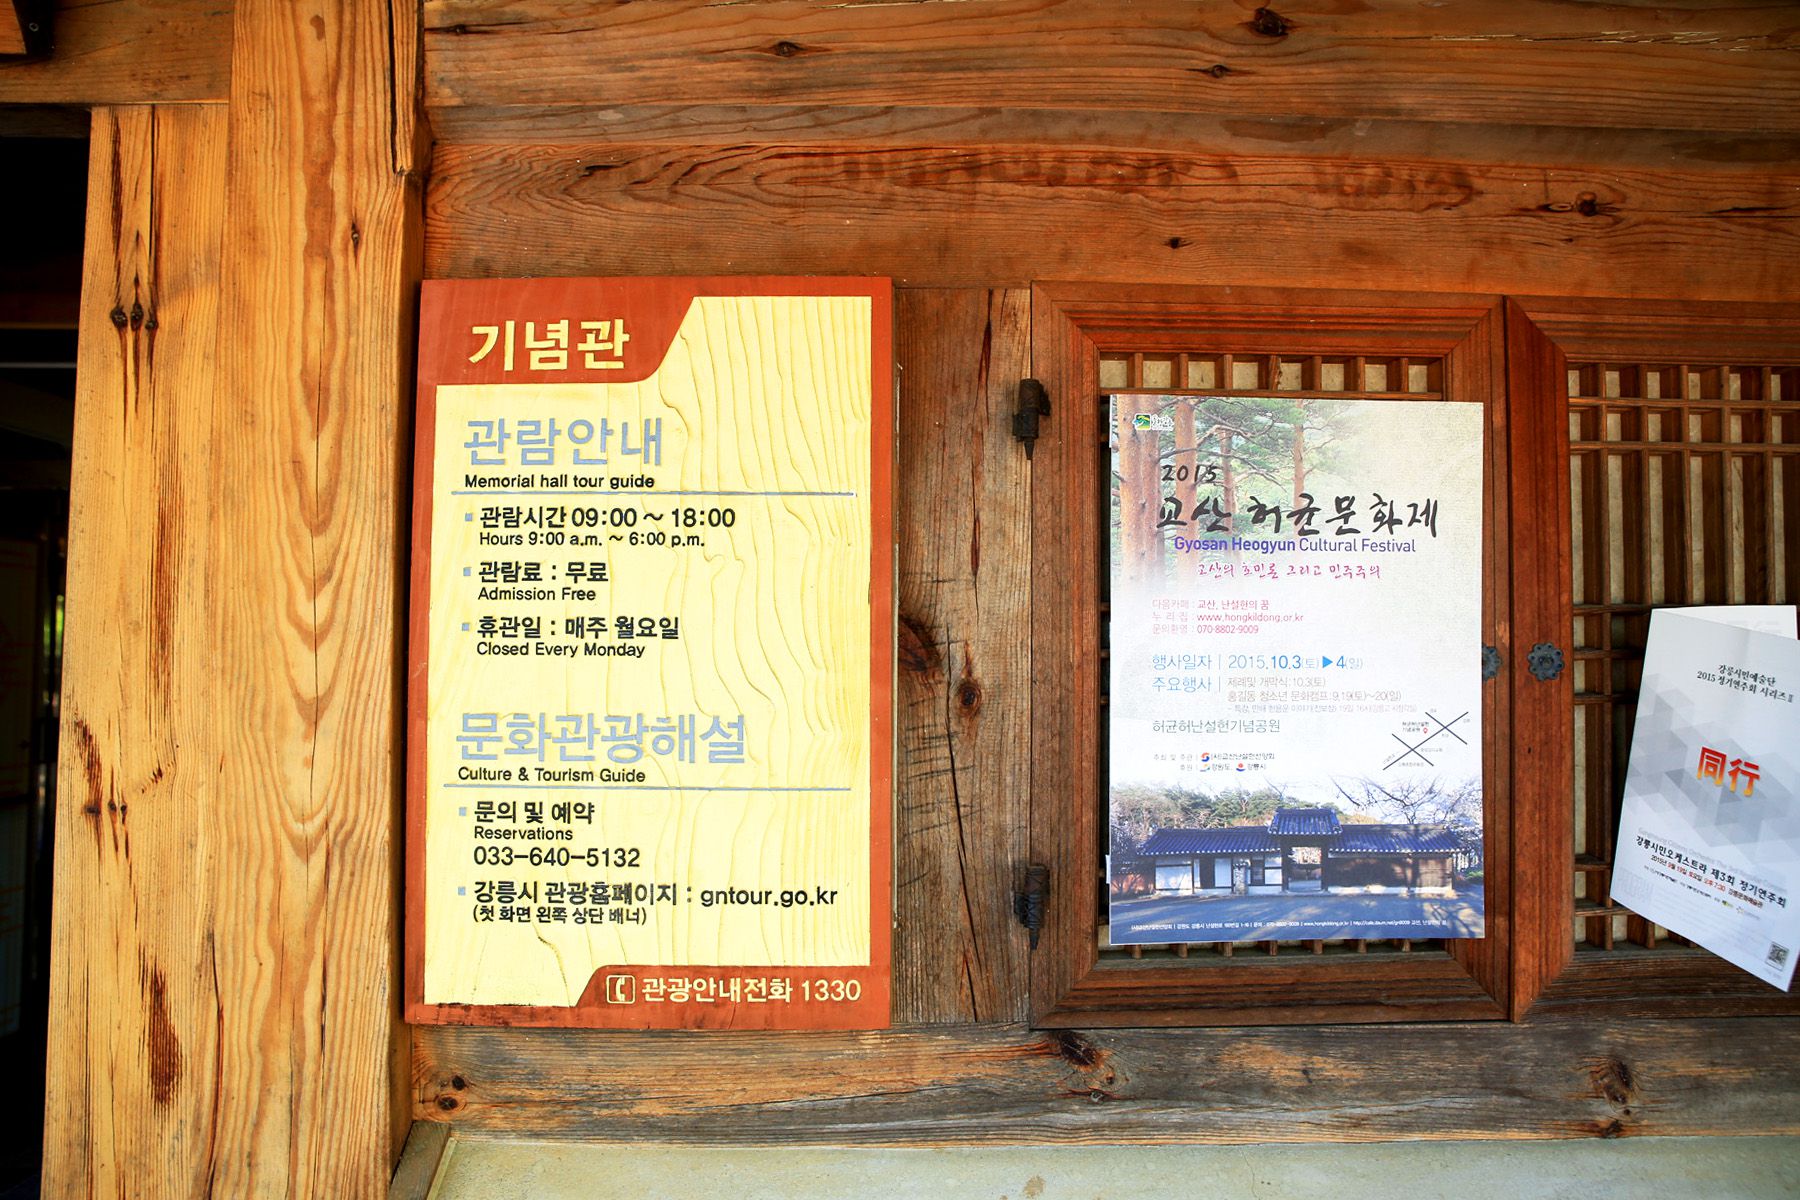 기념관
관람안내
Memorial hall tour guide
관람시간 09:00 ~ 18:00
Hours 9:00 a.m. ~ 6:00 p.m.
관람료 : 무료
Admission Free
휴관일 : 매주 월요일
Closed Every Monday
문화관광해설
Culture & Tourism Guide
문의 및 예약
Reservations
033-640-5132
강릉시 관광홈페이지 : gntour.go.kr
(첫 화면 왼쪽 상단 배너)
관광안내전화 1330
2015
교산 허균문화제
Gyosan Heogyun Cultural Festival
교산의 호민론 그리고 민주주의
다음카페 : 교산, 난설헌의 꿈
누 리 집 : www.hongkildong.or.kr
문의환영 : 070-8802-9009
행사일자 | 2015.10.3(토) ▶ 4(일)
주요행사 | 제례및 개막식:10.3(토)
홍길동 청소년 문화캠프:9.19(토)~20(일)
허균허난설헌기념공원
주최 및 주관 (사)교산난설헌선양회
후원 강원도 강릉시
강릉시민예술단
2015 정기연주회 시리즈 II
同行
강릉시민오케스트라 제3회 정기연주회
2015년 9월 19일 토요일 오후7:30 강릉문화예술관